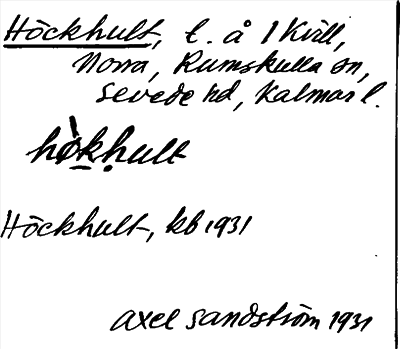 Höckhult, t. å 1 Kvill,
Norra, Rumskulla sn,
Sevede hd, Kalmar l.
hö̀kḥult
Höckhult, kb 1931
Axel Sandström 1931